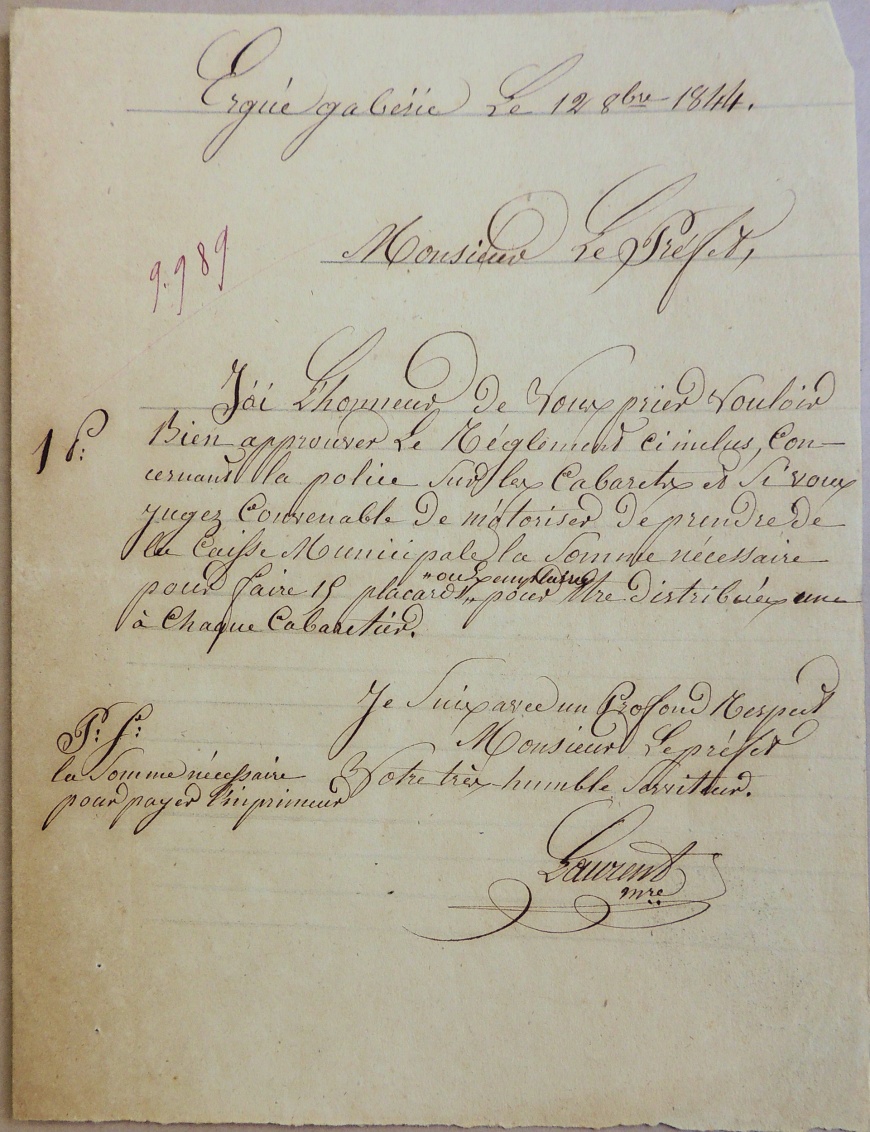 Ergué gabéric Le 12 8bre 1844.
Monsieur Le Préfet,
9.989
J'ai L'honneur de Vous prier Vouloir
1 P.:
Bien approuver Le Réglement ci inclus, Con-
cernant la police Sur les Cabarets et Si vous
jugez Convenable De m'otoriser De prendre de
la Caisse Municipale la Somme nécessaire
pour faire 15 placards "ou Exemplaires" pour être distribuées une
à Chaque Cabaretier.
Je Suis avec un Profond Respect
Monsieur Le préfet
Votre très humble Serviteur.
P.: f.:
la Somme nécessaire
pour payer l'imprimeur
Laurent
mre